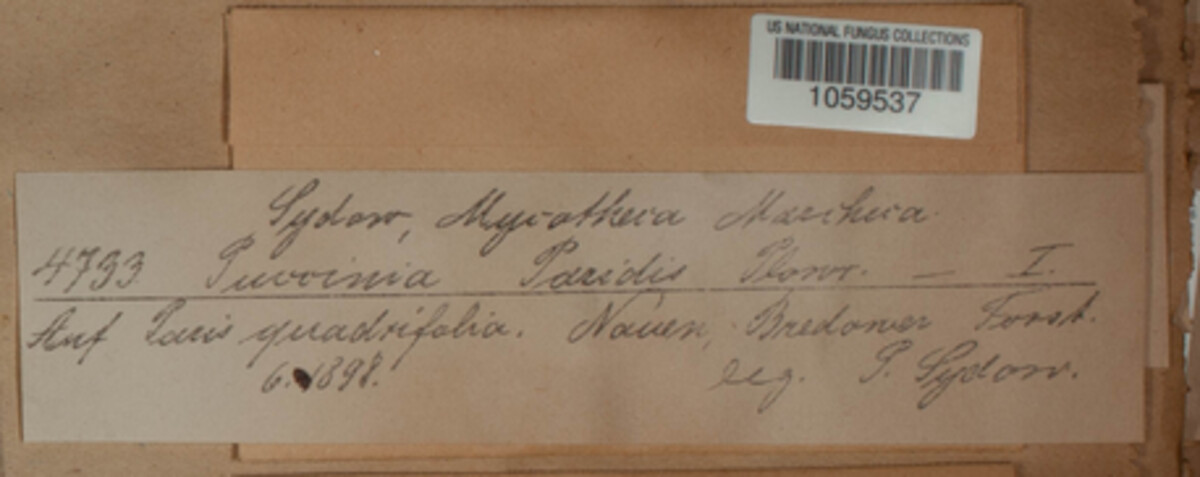 US NATIONAL FUNGUS COLLECTIONS
1059537
Sydow, Mycotheca Marchica.
4733 Puccinia Paridis Plowr. — I.
Auf Paris quadrifolia. Nauen, Bredower Forst.
6. 1898. leg. P. Sydow.